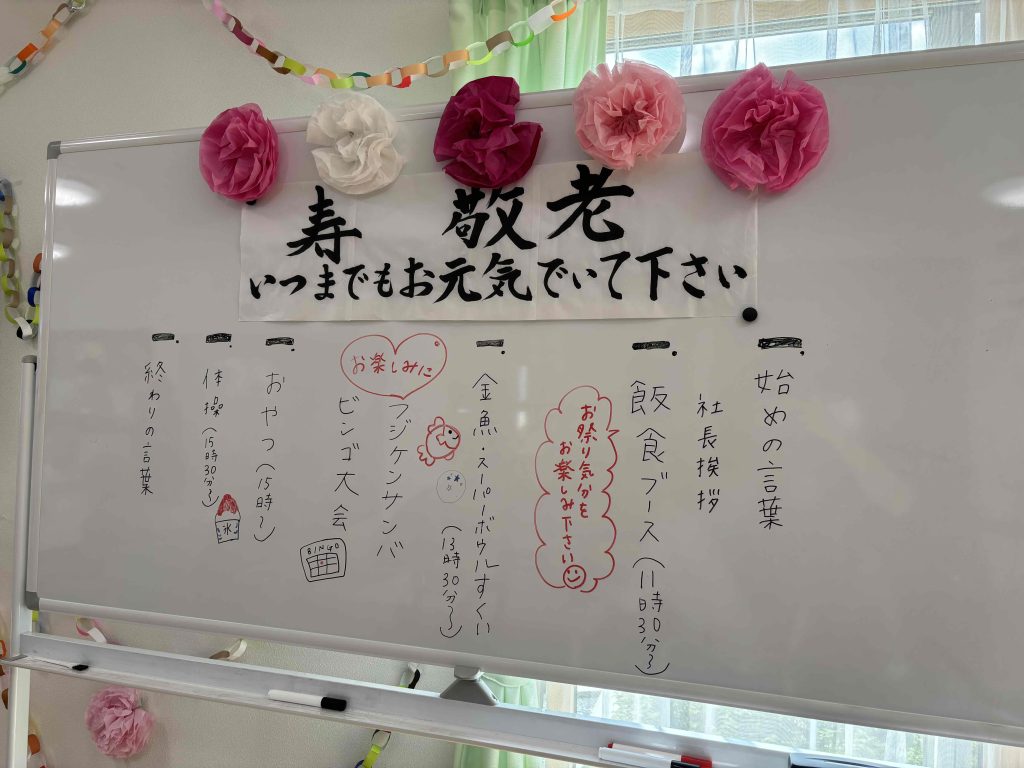 寿 敬老
いつまでもお元気でいて下さい
一.始めの言葉
社長挨拶
一.飯食ブース(11時30分〜)
お祭り気分を
お楽しみ下さい
一.金魚・スーパーボウルすくい
(13時30分〜)
お楽しみに
フジケンサンバ
ビンゴ大会
BINGO
一.おやつ(15時〜)
一.体操(15時30分〜)
氷
一.終わりの言葉